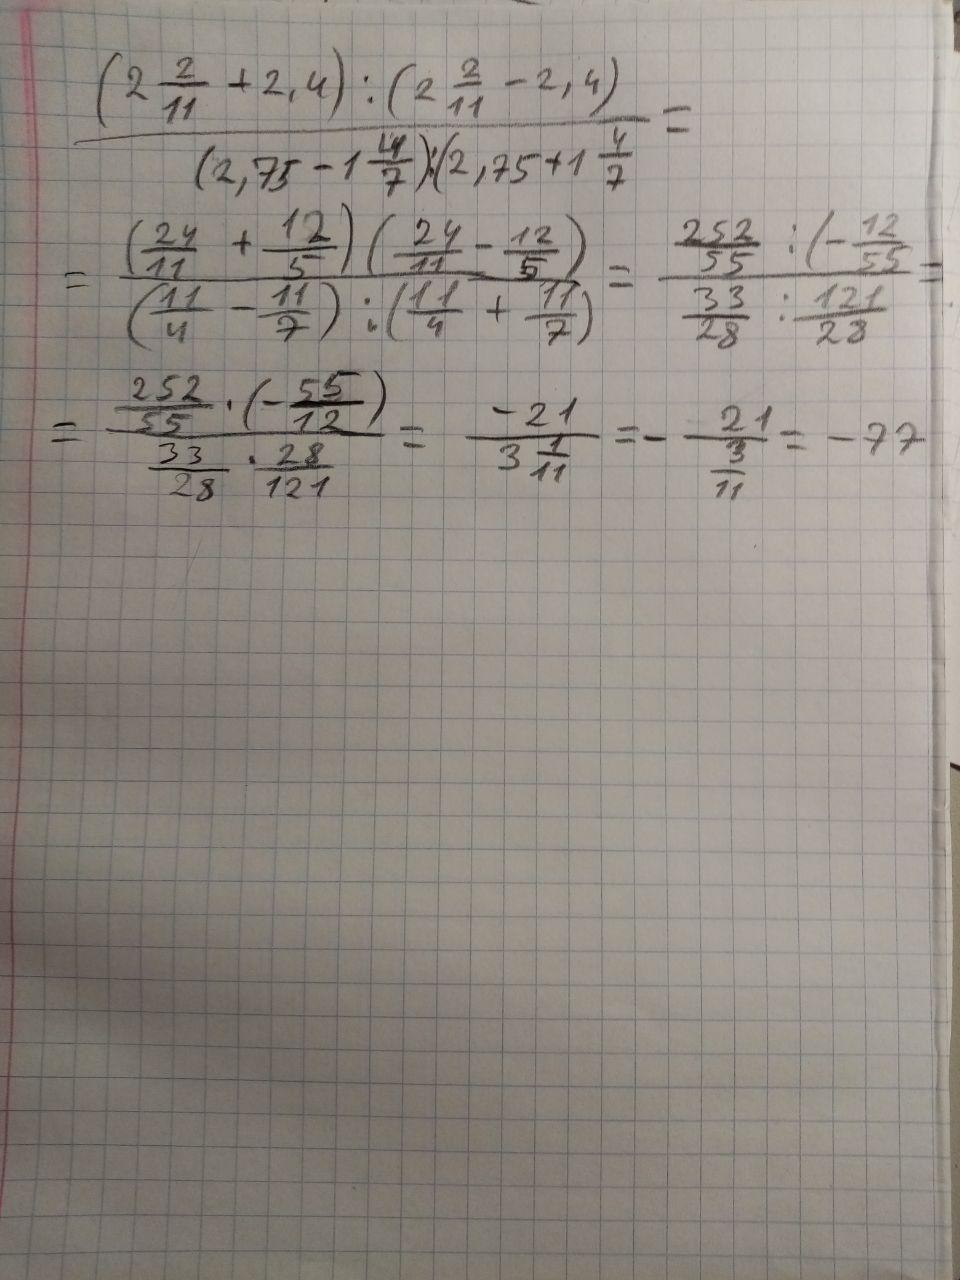 (2 2/11 + 2,4) : (2 2/11 - 2,4)
(2,75 - 1 4/7) : (2,75 + 1 4/7 =
= (24/11 + 12/5) (24/11 - 12/5) / (11/4 - 11/7) : (11/4 + 11/7) = 252/55 : (- 12/55 / 33/28 : 121/28 =
= 252/55 · (- 55/12) / 33/28 · 28/121 = -21 / 3 1/11 = - 21 / 3/11 = -77